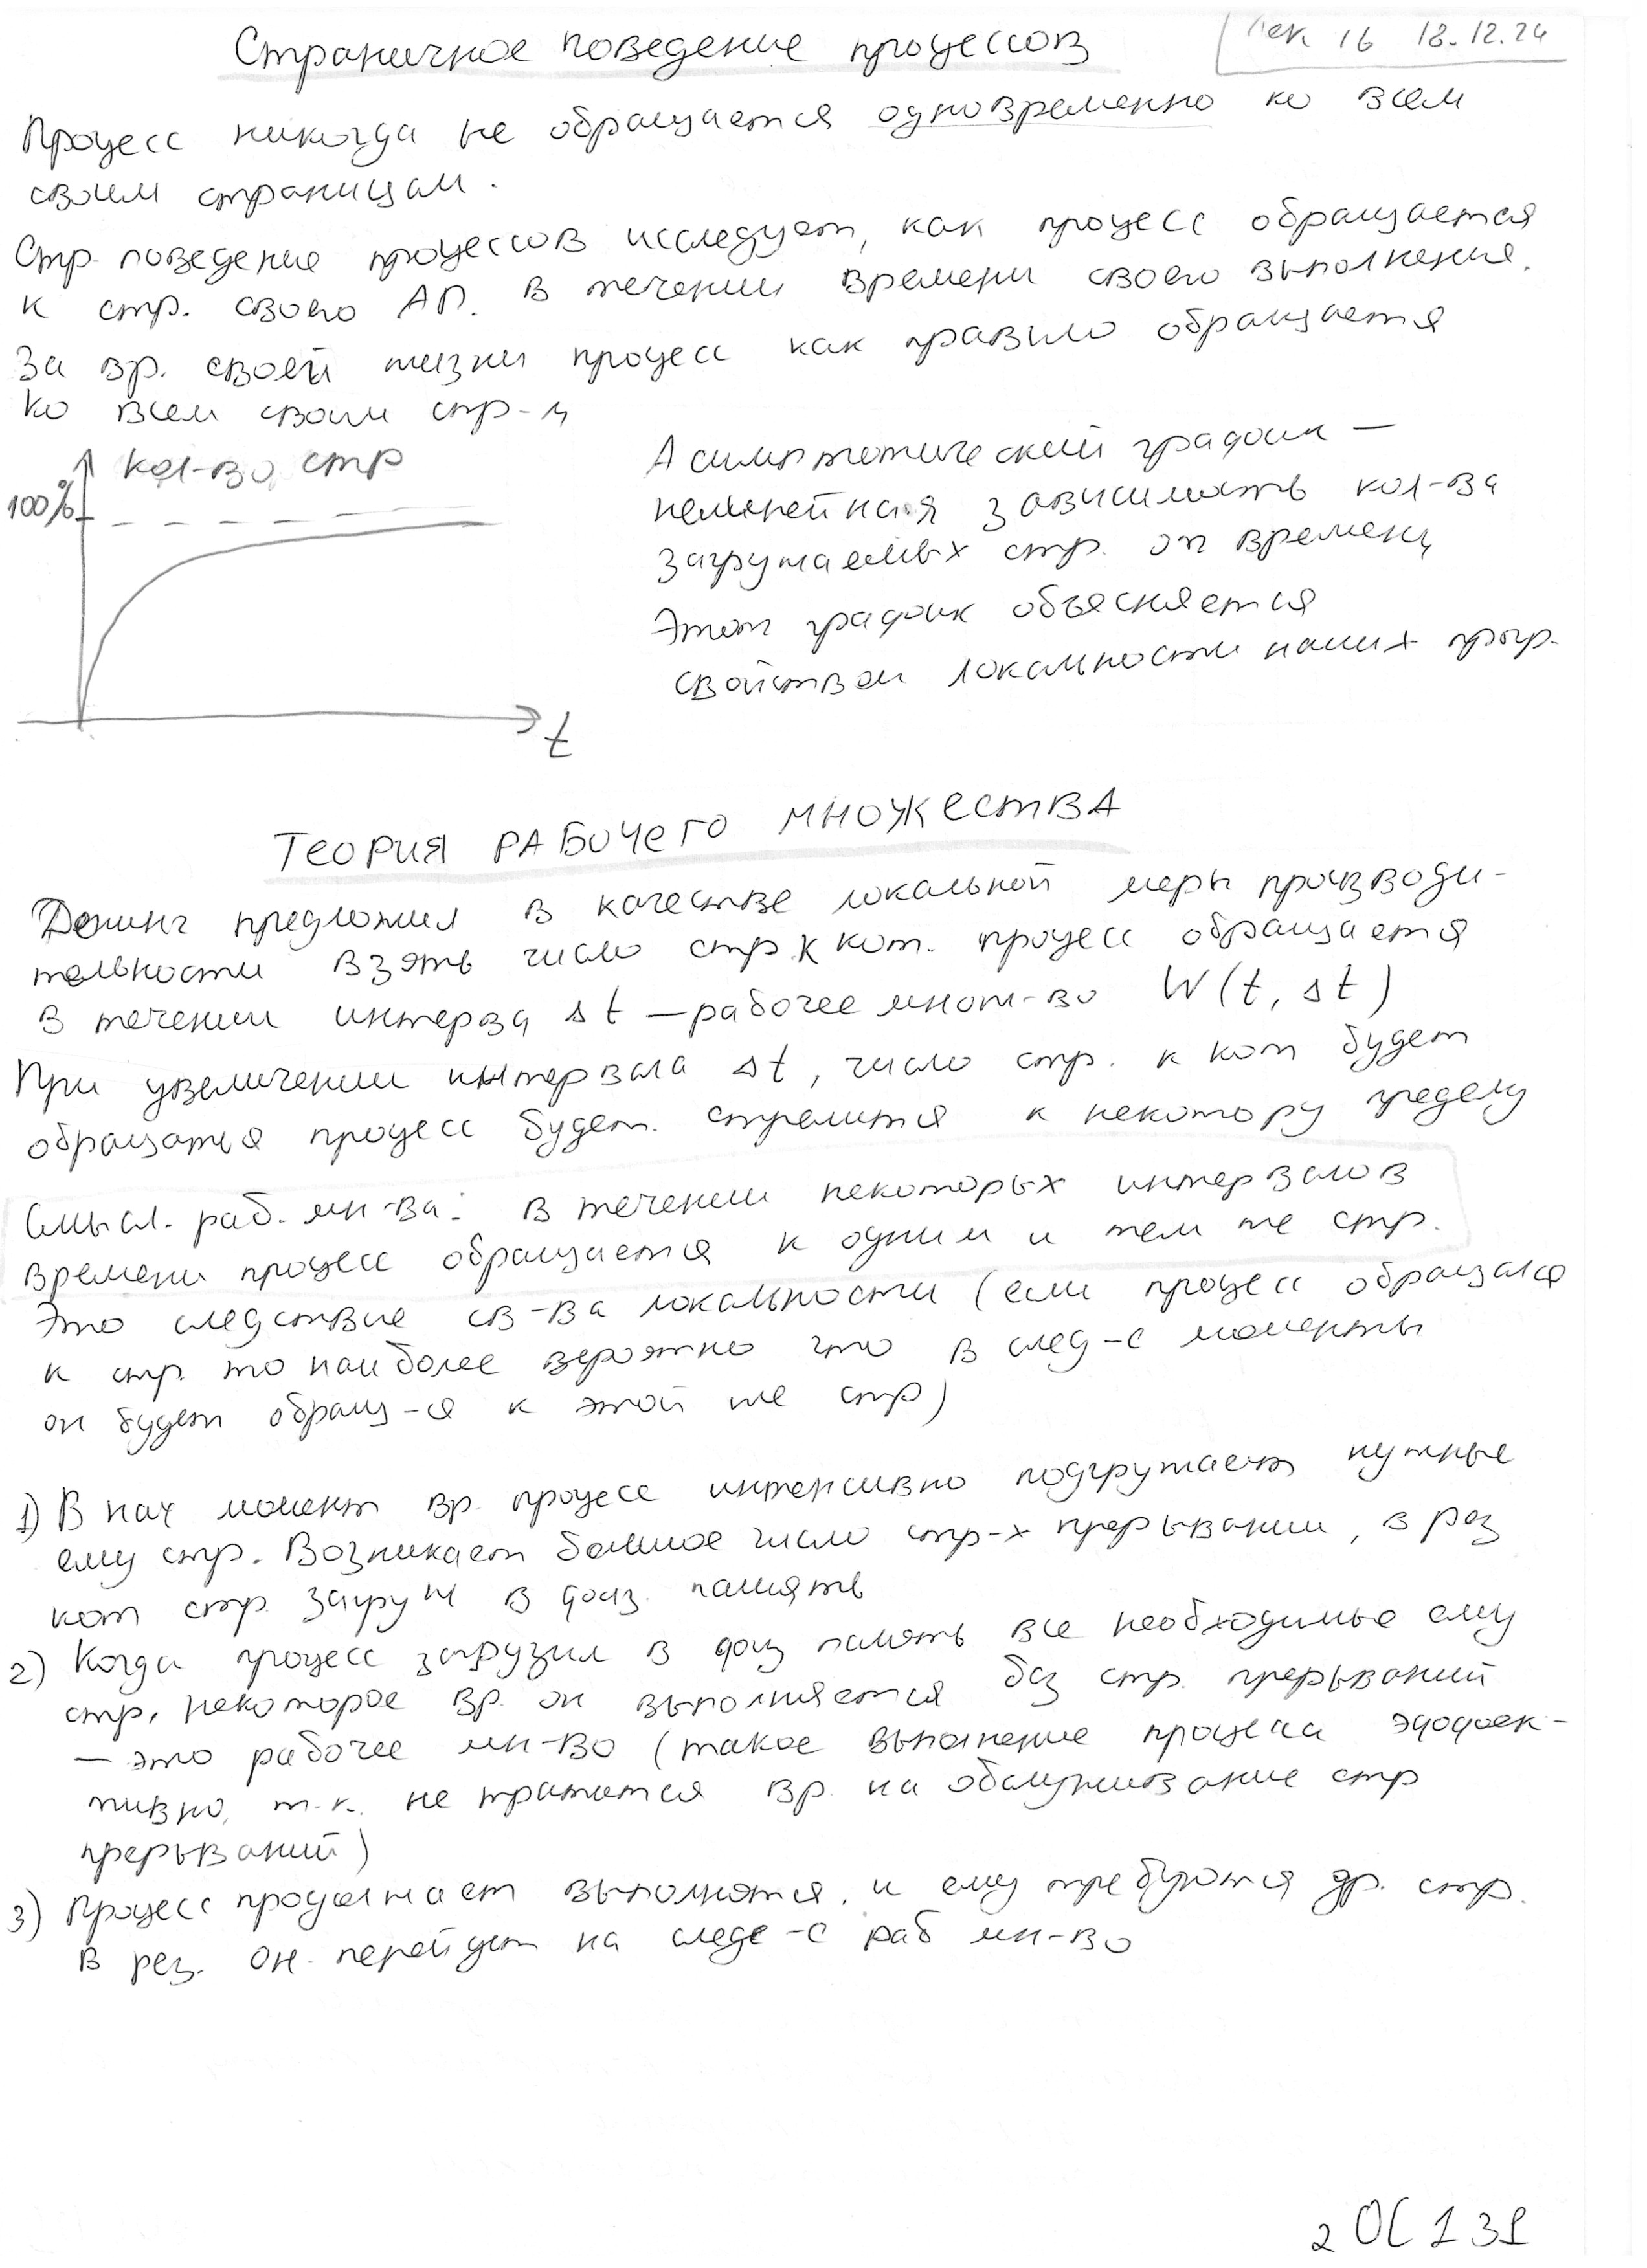 Лек 16 18.12.24
Страничное поведение процессов
Процесс никогда не обращается одновременно ко всем
своим страницам.
Стр. поведение процессов исследует, как процесс обращается
к стр. своего АП. в течении времени своего выполнения.
За вр. своей жизни процесс как правило обращается
ко всем своим стр-м
кол-во стр
100%
t
Асимптотический график —
нелинейная зависимость кол-ва
загружаемых стр. от времени
Этот график объясняется
свойством локальности наших прогр.
ТЕОРИЯ РАБОЧЕГО МНОЖЕСТВА
Денинг предложил в качестве локальной меры производи-
тельности взять число стр. к кот. процесс обращается
в течении интерва Δt — рабочее множ-во W(t, Δt)
При увеличении интервала Δt, число стр. к кот будет
обращаться процесс будет. стремится к некотору пределу
Смысл. раб. мн-ва: в течении некоторых интервалов
времени процесс обращается к одним и тем же стр.
Это следствие св-ва локальности (если процесс обращался
к стр. то наиболее вероятно что в след-е моменты
он будет обращ-ся к этой же стр)
1) В нач момент вр. процесс интенсивно подгружает нужные
ему стр. Возникает большое число стр-х прерывании, в рез
кот стр. загруж в физ. память
2) Когда процесс загрузил в физ память все необходимые ему
стр, некоторое вр. он выполняется без стр. прерываний
— это рабочее мн-во (такое выполнение процесса эффек-
тивно, т.к. не тратится вр. на обслуживание стр
прерываний)
3) Процесс продолжает выполнятся. и ему требуются др. стр.
В рез. он. перейдет на следе-е раб мн-во
2 ОС 131